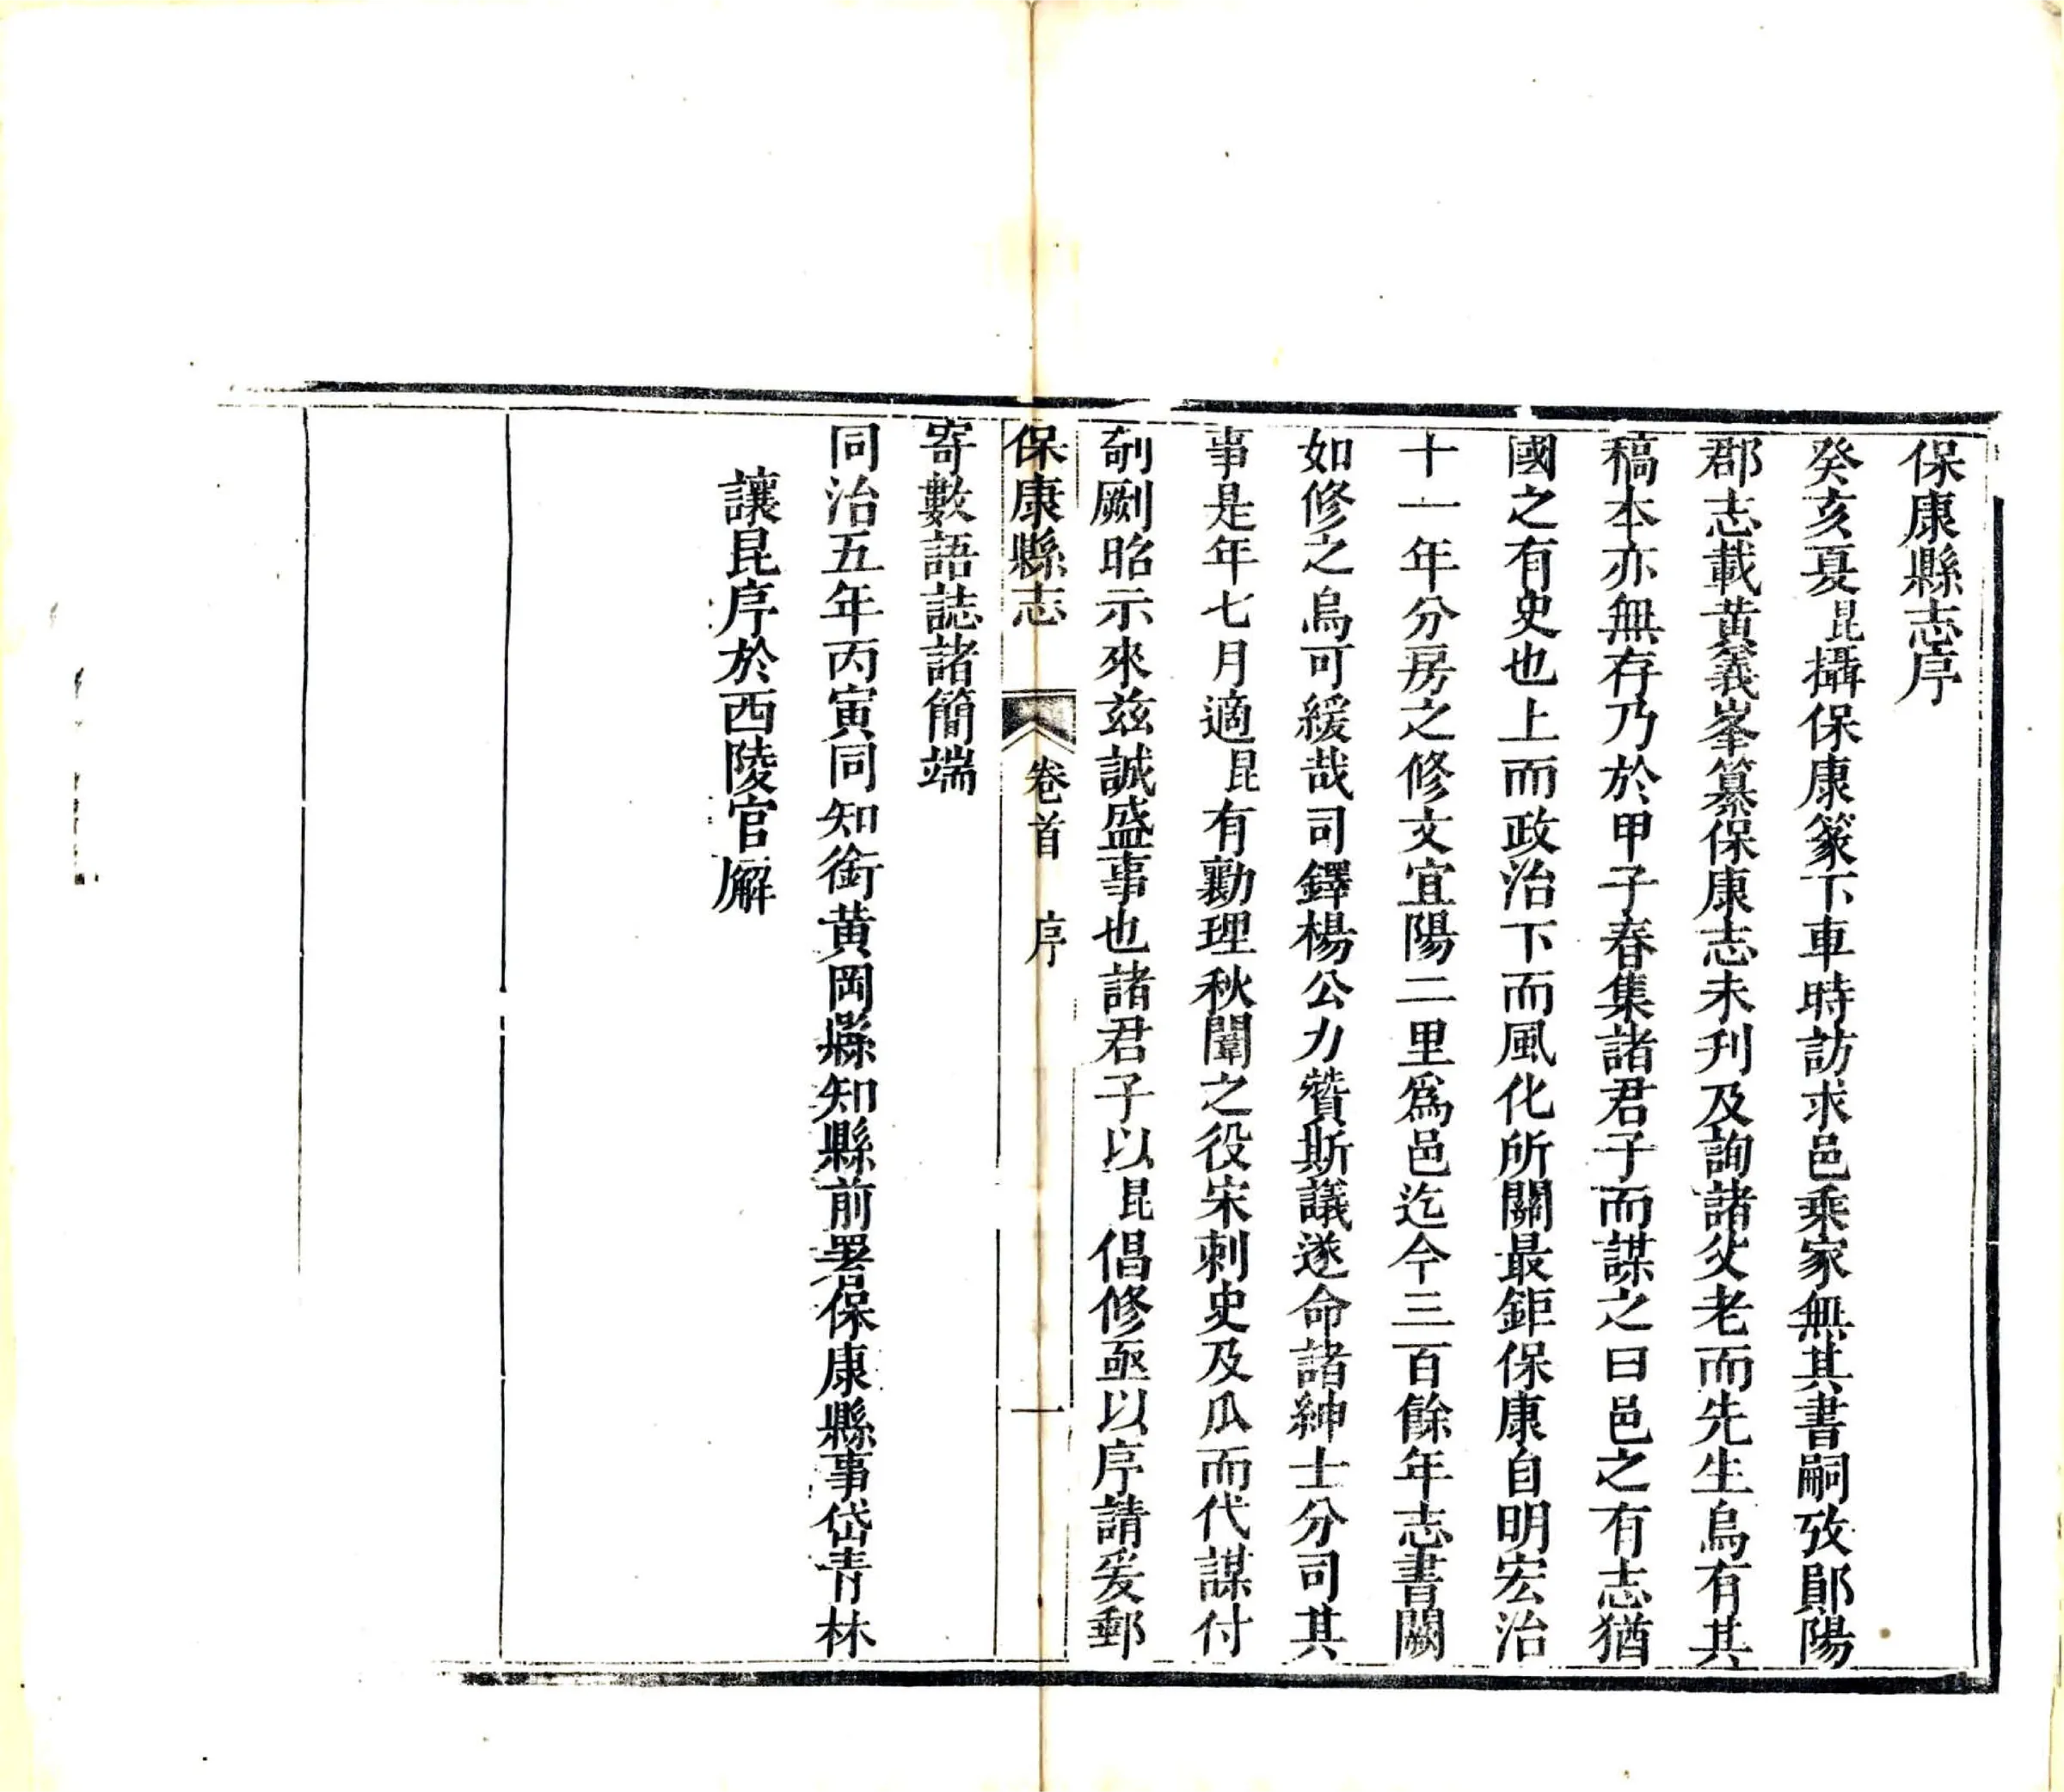 保康縣志序
癸亥夏昆攝保康篆下車時訪求邑乘家無其書嗣攷鄖陽
郡志載黃義峯纂保康志未刋及詢諸父老而先生烏有其
稿本亦無存乃於甲子春集諸君子而謀之曰邑之有志猶
國之有史也上而政治下而風化所關最鉅保康自明宏治
十一年分房之修文宜陽二里爲邑迄今三百餘年志書闕
如修之烏可緩哉司鐸楊公力贊斯議遂命諸紳士分司其
事是年七月適昆有勷理秋闈之役宋刺史及瓜而代謀付
剞劂昭示來茲誠盛事也諸君子以昆倡修亟以序請爰郵
保康縣志 卷首 序 一
寄數語誌諸簡端
同治五年丙寅同知銜黃岡縣知縣前署保康縣事岱青林
讓昆序於西陵官廨